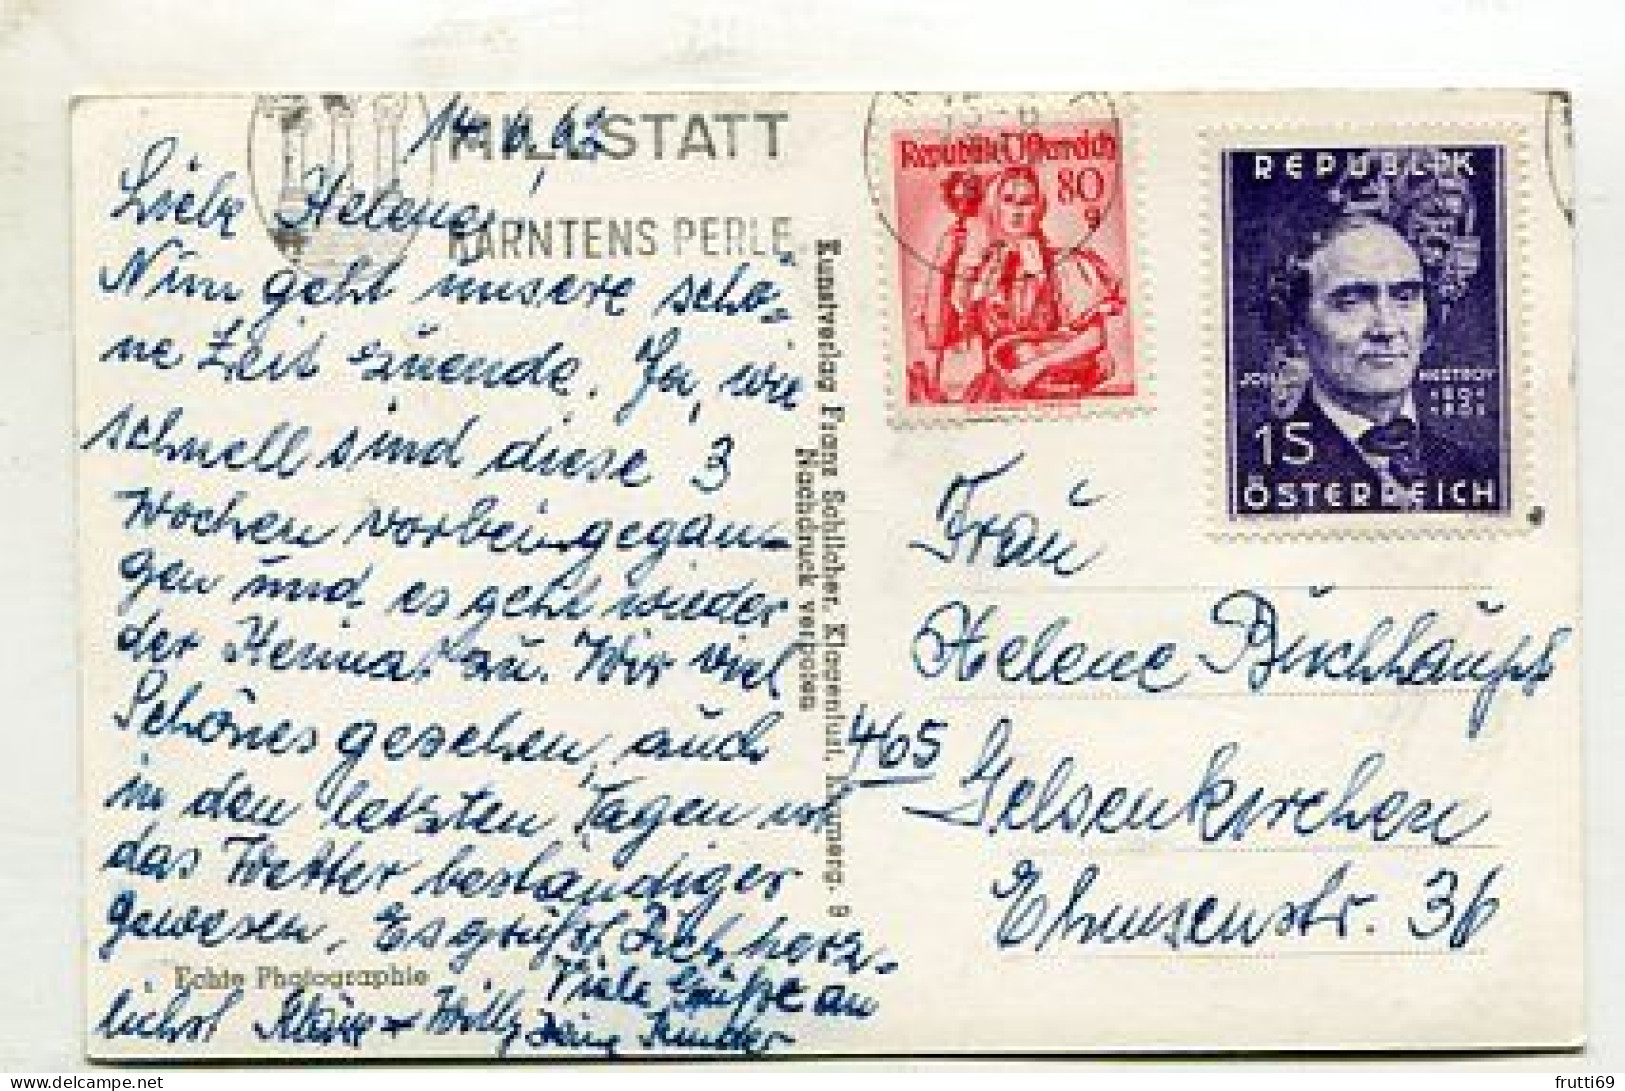 14.6.62
MILLSTATT
KÄRNTENS PERLE
Liebe Helene,
Nun geht unsere schö-
ne Zeit zuende. Ja, wie
schnell sind diese 3
Wochen vorbeigegan-
gen und es geht wieder
der Heimat zu. Wir viel
Schönes gesehen, auch
in den letzten Tagen ist
das Wetter beständiger
gewesen. Es grüßt Dich herz-
lichst Kläre + Willy
Viele Grüße an
Deine Kinder
Echte Photographie
Kunstverlag Franz Schilcher, Klagenfurt,
Nachdruck verboten
Republik Österreich
80 g
REPUBLIK
NESTROY
1S
ÖSTERREICH
Frau
Helene Buchhaupt
465 Gelsenkirchen
36
frutti69
delcampe.net